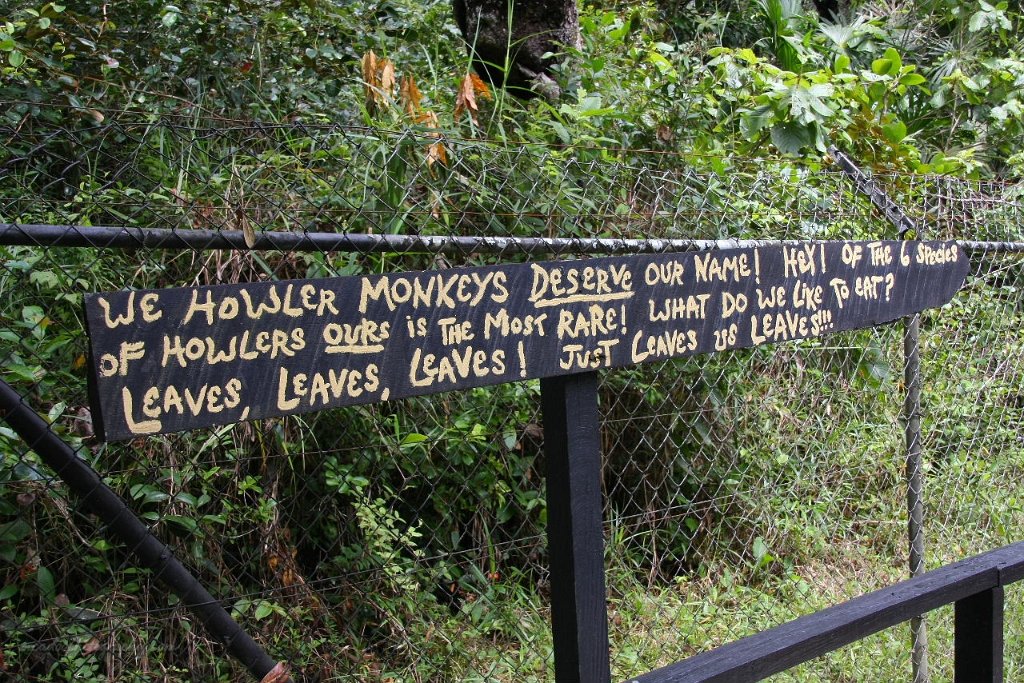 WE HOWLER MONKEYS DESERVE OUR NAME! HEY! OF THE 6 SPECIES
OF HOWLERS OURS IS THE MOST RARE! WHAT DO WE LIKE TO EAT?
LEAVES, LEAVES, LEAVES! JUST LEAVES US LEAVES!!!